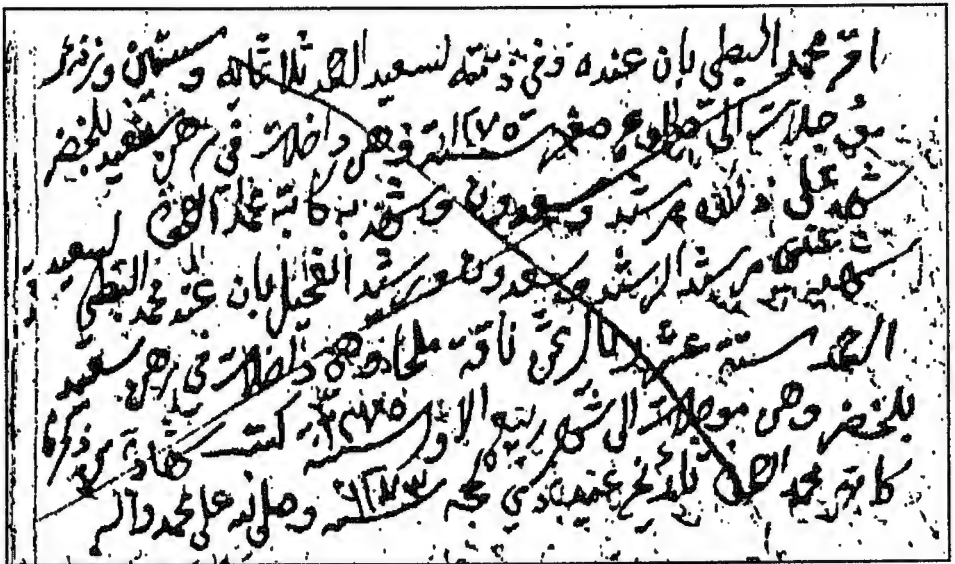 اقر محمد البطي بان عنده وفي ذمته لسعيد الحمد ثلاثمائه وستمان وزنة تمر
مؤجلات الى طلوع صفر سنة ١٢٧٥ وهن داخلات في رهن سعيد للخضر
شهد على ذلك مرشد وسعدون وشهد به كاتبه محمد
شهد عندي مرشد الرشيد وسعدون ورشيد الفحيل بان عند محمد البطي لسعيد
الحمد ستة عشر ريال ثمن ناقة ملحا وهن داخلات في رهن سعيد
للخضر وهن موجلات الى شهر ربيع الاول سنة ١٢٧٥ كتب شهادة من ذكرنا
كاتبه محمد ذي حجه سنة ١٢٧٣ وصلى الله على محمد واله